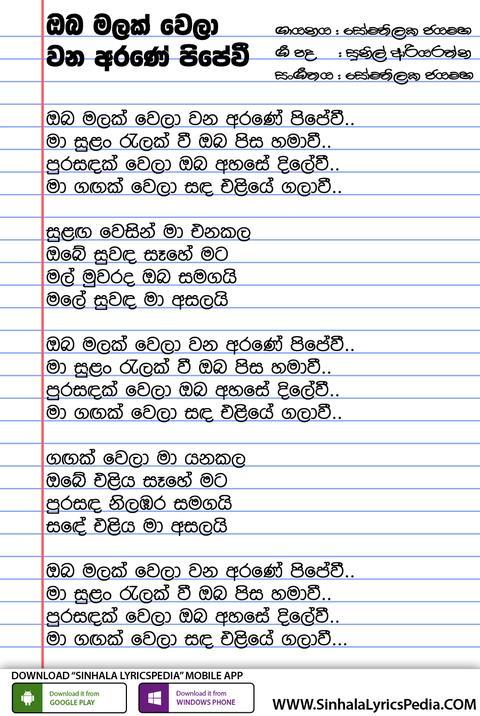 ඔබ මලක් වෙලා
වන අරණේ පිපේවී
ගායනය : සෝමතිලක ජයමහ
ගී පද : සුනිල් ආරියරත්න
සංගීතය : සෝමතිලක ජයමහ
ඔබ මලක් වෙලා වන අරණේ පිපේවී..
මා සුළං රැලක් වී ඔබ පිස හමාවී..
පුරසඳක් වෙලා ඔබ අහසේ දිලේවී..
මා ගඟක් වෙලා සඳ එළියේ ගලාවී..
සුළඟ වෙසින් මා එනකල
ඔබේ සුවඳ සෑහේ මට
මල් මුවරද ඔබ සමගයි
මලේ සුවඳ මා අසලයි
ඔබ මලක් වෙලා වන අරණේ පිපේවී..
මා සුළං රැලක් වී ඔබ පිස හමාවී..
පුරසඳක් වෙලා ඔබ අහසේ දිලේවී..
මා ගඟක් වෙලා සඳ එළියේ ගලාවී..
ගඟක් වෙලා මා යනකල
ඔබේ එළිය සෑහේ මට
පුරසඳ නිලඹර සමගයි
සඳේ එළිය මා අසලයි
ඔබ මලක් වෙලා වන අරණේ පිපේවී..
මා සුළං රැලක් වී ඔබ පිස හමාවී..
පුරසඳක් වෙලා ඔබ අහසේ දිලේවී..
මා ගඟක් වෙලා සඳ එළියේ ගලාවී...
DOWNLOAD "SINHALA LYRICSPEDIA" MOBILE APP
Download it from
GOOGLE PLAY
Download it from
WINDOWS PHONE
WWW.SinhalaLyricsPedia.COM